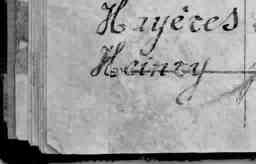 Hyères
Heincy